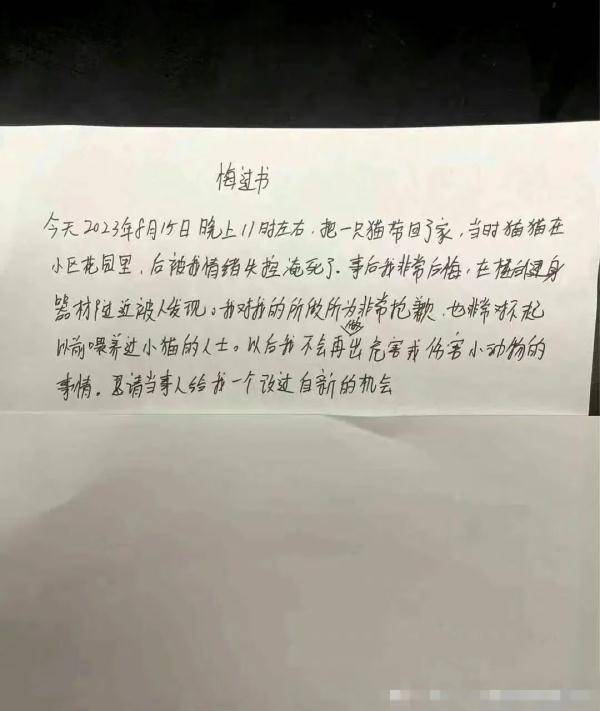 悔过书
今天2023年8月15日晚上11时左右,把一只猫带回了家,当时猫猫在
小区花园里,后被我情绪失控淹死了。事后我非常后悔,在 健身
器材附近被人发现。我对我的所做所为非常抱歉,也非常对不起
以前喂养过小猫的人士。以后我不会再做出危害或伤害小动物的
事情。恳请当事人给我一个改过自新的机会